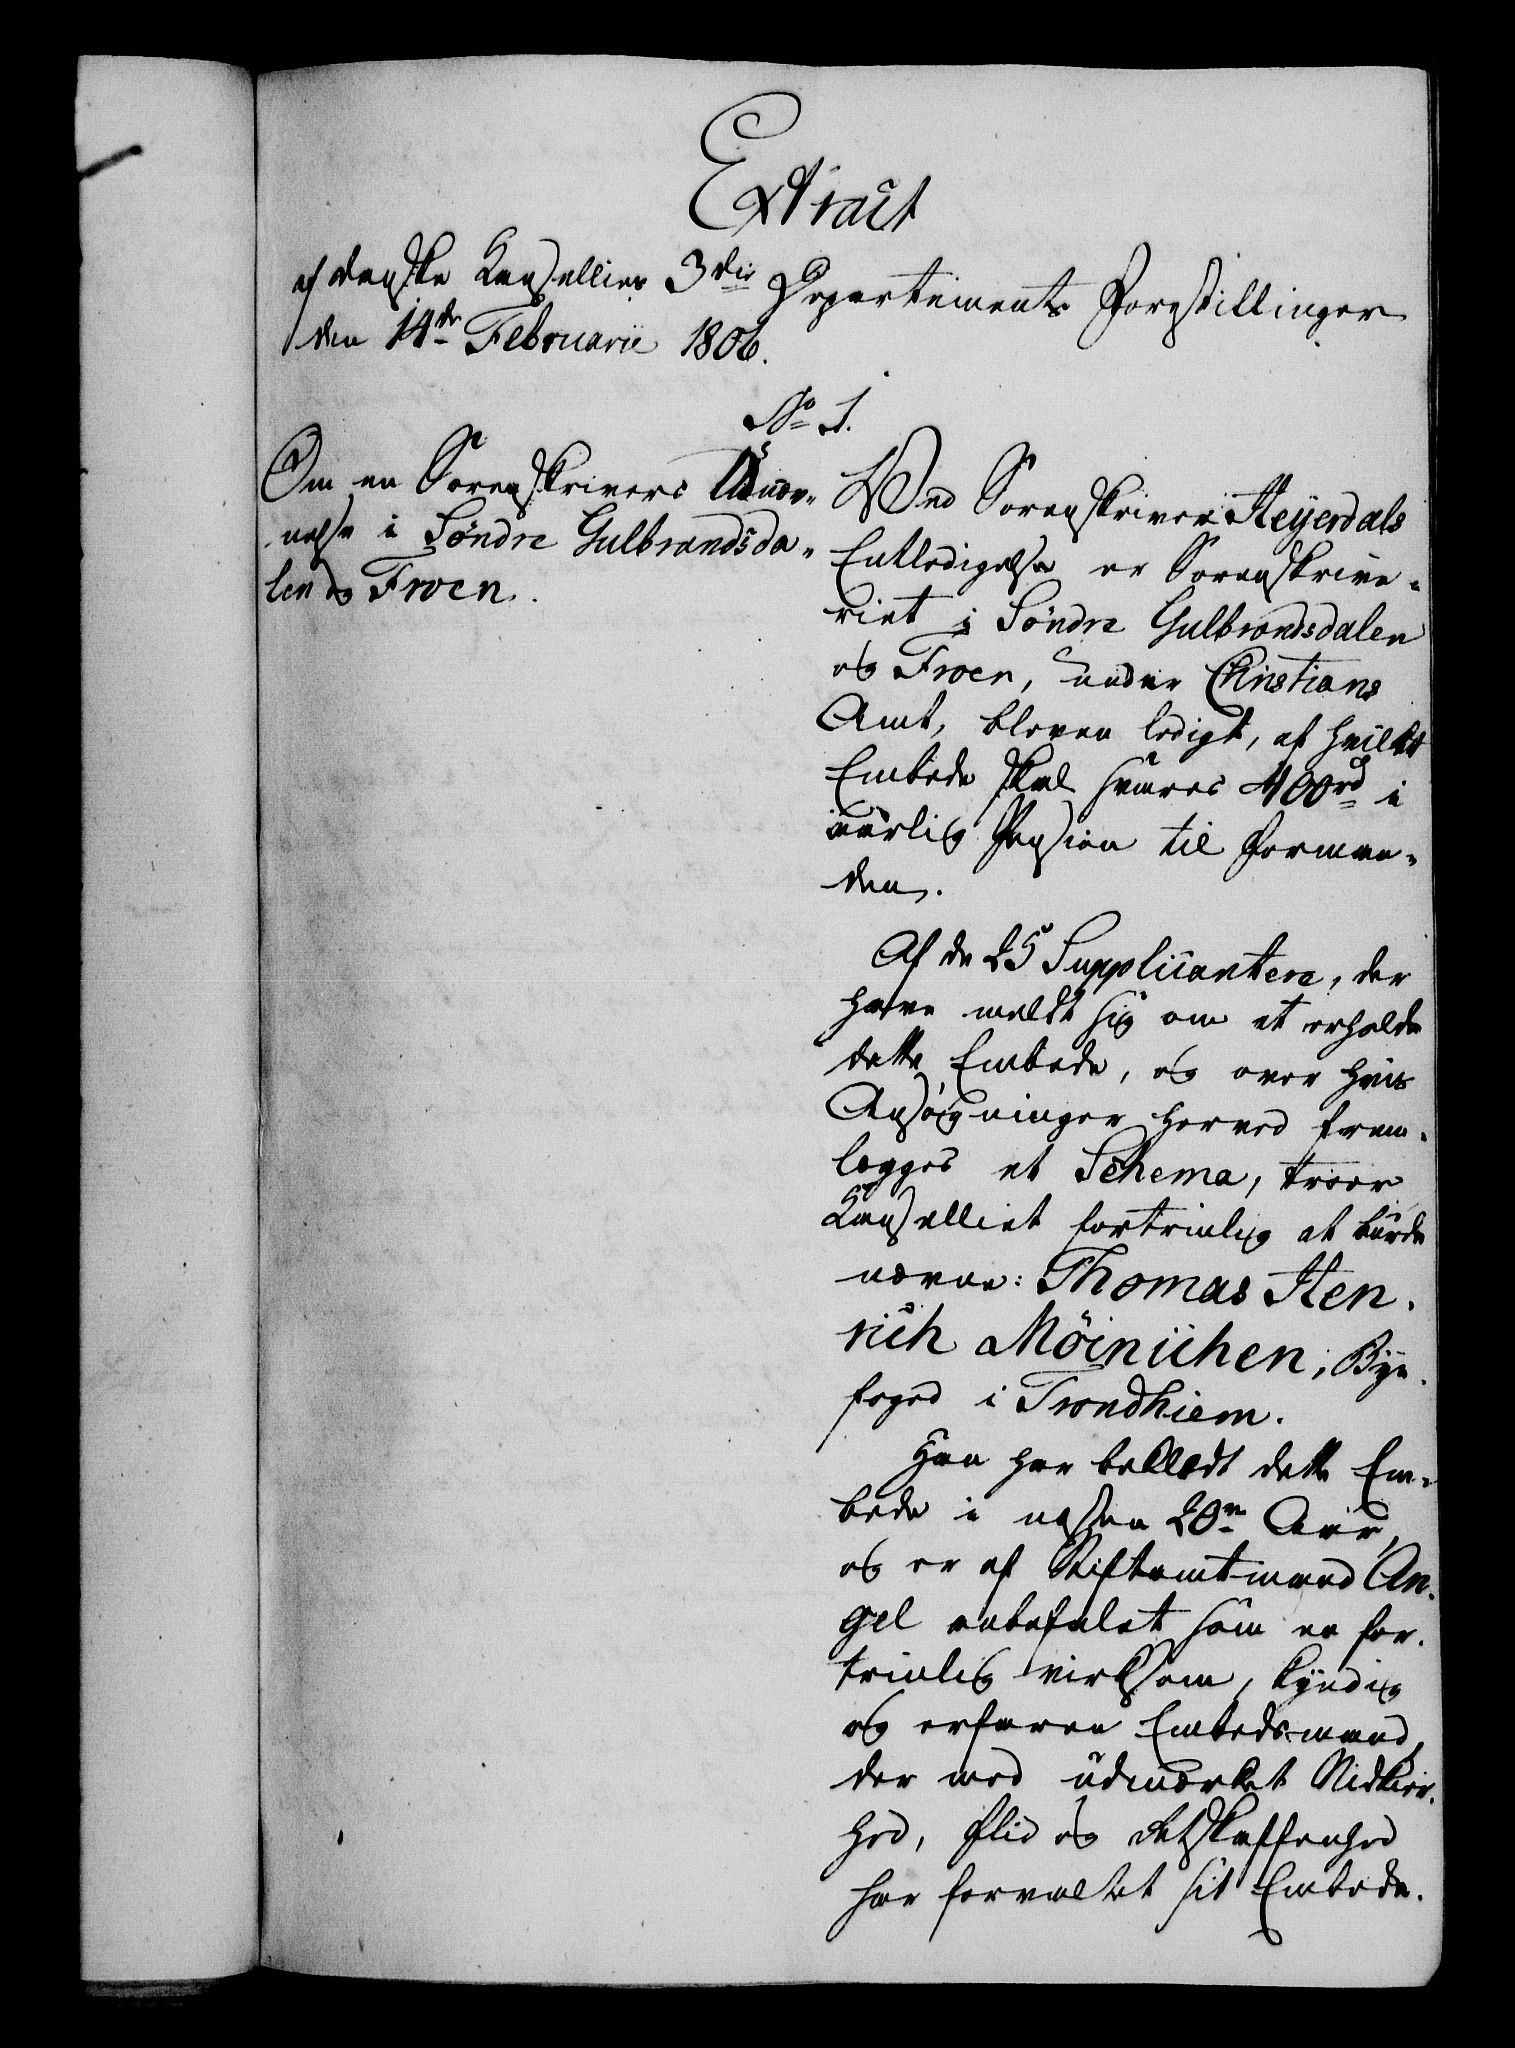 Extract
af danske Cancellies 3die Departements Forestillinger
den 14de Februarii 1806.
No 1.
Om en Sorenskrivers Udnæv-
nelse i Søndre Gulbrandsda-
len og Froen.
Ved Sorenskriver Heyerdals
Entledigelse er Sorenskrive-
riet i Søndre Gulbrandsdalen
og Froen, under Christians
Amt, bleven ledigt, af hvilket
Embede skal svares 400rd i
aarlig Pension til Forman-
den.
Af de 25 Supplicantere, der
have meldt sig om at erholde
dette Embede, og over hvis
Ansøgninger herved frem-
lægges et Schema, troer
Cancelliet fortrinlig at burde
nævne: Thomas Hen-
rich Möinichen, Bye-
foged i Trondhiem.
Han har beklædt dette Em-
bede i næsten 20ve Aar,
og er af Stiftamtmand An-
gel anbefalet som en for-
trinlig virksom, kyndig
og erfaren Embedsmand,
der med udmærket Nidkier-
hed, Flid og Retskaffenhed
har forvaltet sit Embede.